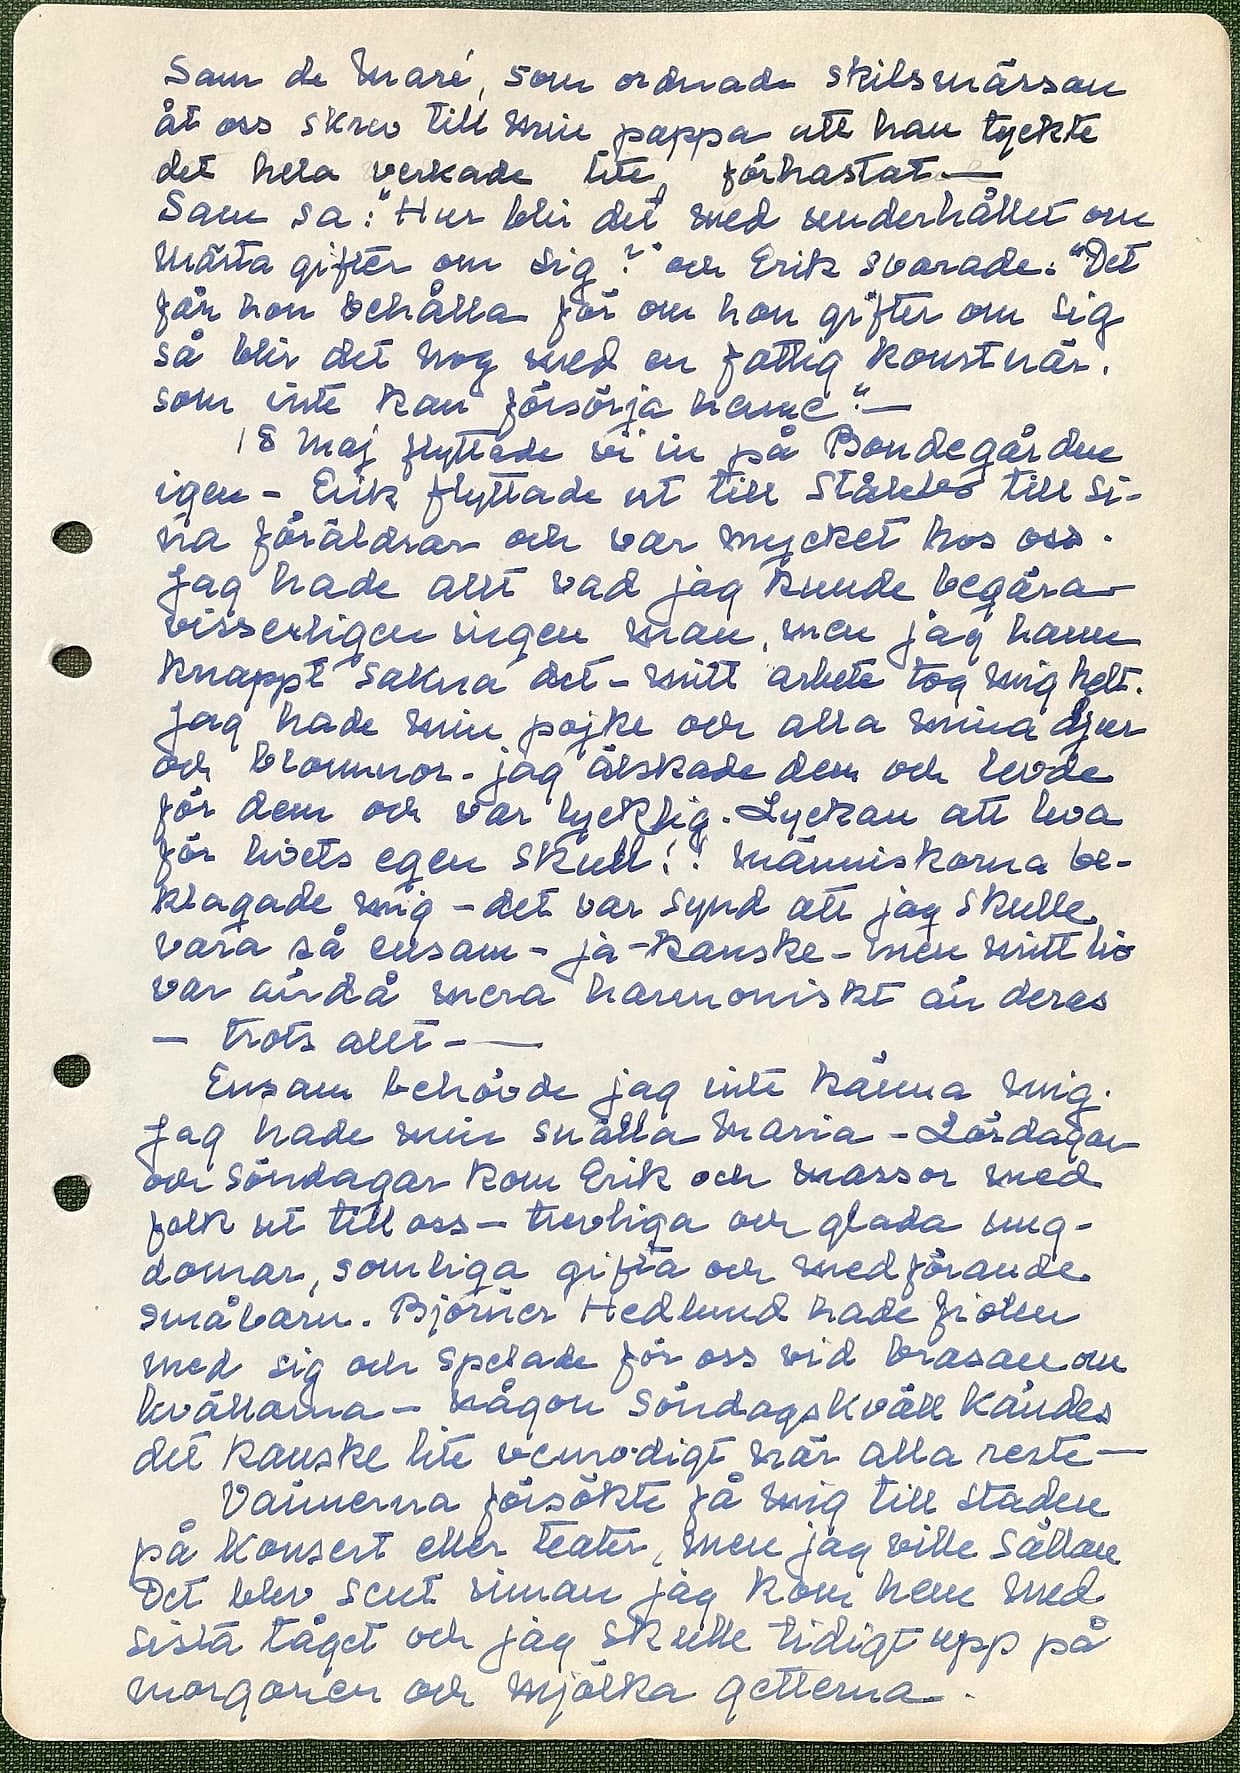 Sam de Maré, som ordnade skilsmässan
åt oss skrev till min pappa att han tyckte
det hela verkade lite förhastat —
Sam sa: "Hur blir det med underhållet om
Märta gifter om sig?" och Erik svarade: "Det
får hon behålla för om hon gifter om sig
så blir det nog med en fattig konstnär.
som inte kan försörja henne". —
18 Maj flyttade vi in på Bondegården
igen - Erik flyttade ut till Stålbo till si-
na föräldrar och var mycket hos oss.
Jag hade allt vad jag kunde begära —
visserligen ingen man, men jag hann
knappt sakna det - mitt arbete tog mig helt.
Jag hade min pojke och alla mina djur
och blommor - jag älskade dem och levde
för dem och var lycklig. Lyckan att leva
för livets egen skull!! Människorna be-
klagade mig - det var synd att jag skulle
vara så ensam - ja - kanske - men mitt liv
var ändå mera harmoniskt än deras
— trots allt - —
Ensam behövde jag inte känna mig.
Jag hade min snälla Maria - Lördagar
och Söndagar kom Erik och massor med
folk ut till oss - trevliga och glada ung-
domar, somliga gifta och medförande
småbarn. Björner Hedlund hade fiolen
med sig och spelade för oss vid brasan om
kvällarna - någon Söndagskväll kändes
det kanske lite vemodigt när alla reste —
Vännerna försökte få mig till staden
på konsert eller teater, men jag ville sällan
Det blev sent innan jag kom hem med
sista tåget och jag skulle tidigt upp på
morgonen och mjölka getterna.